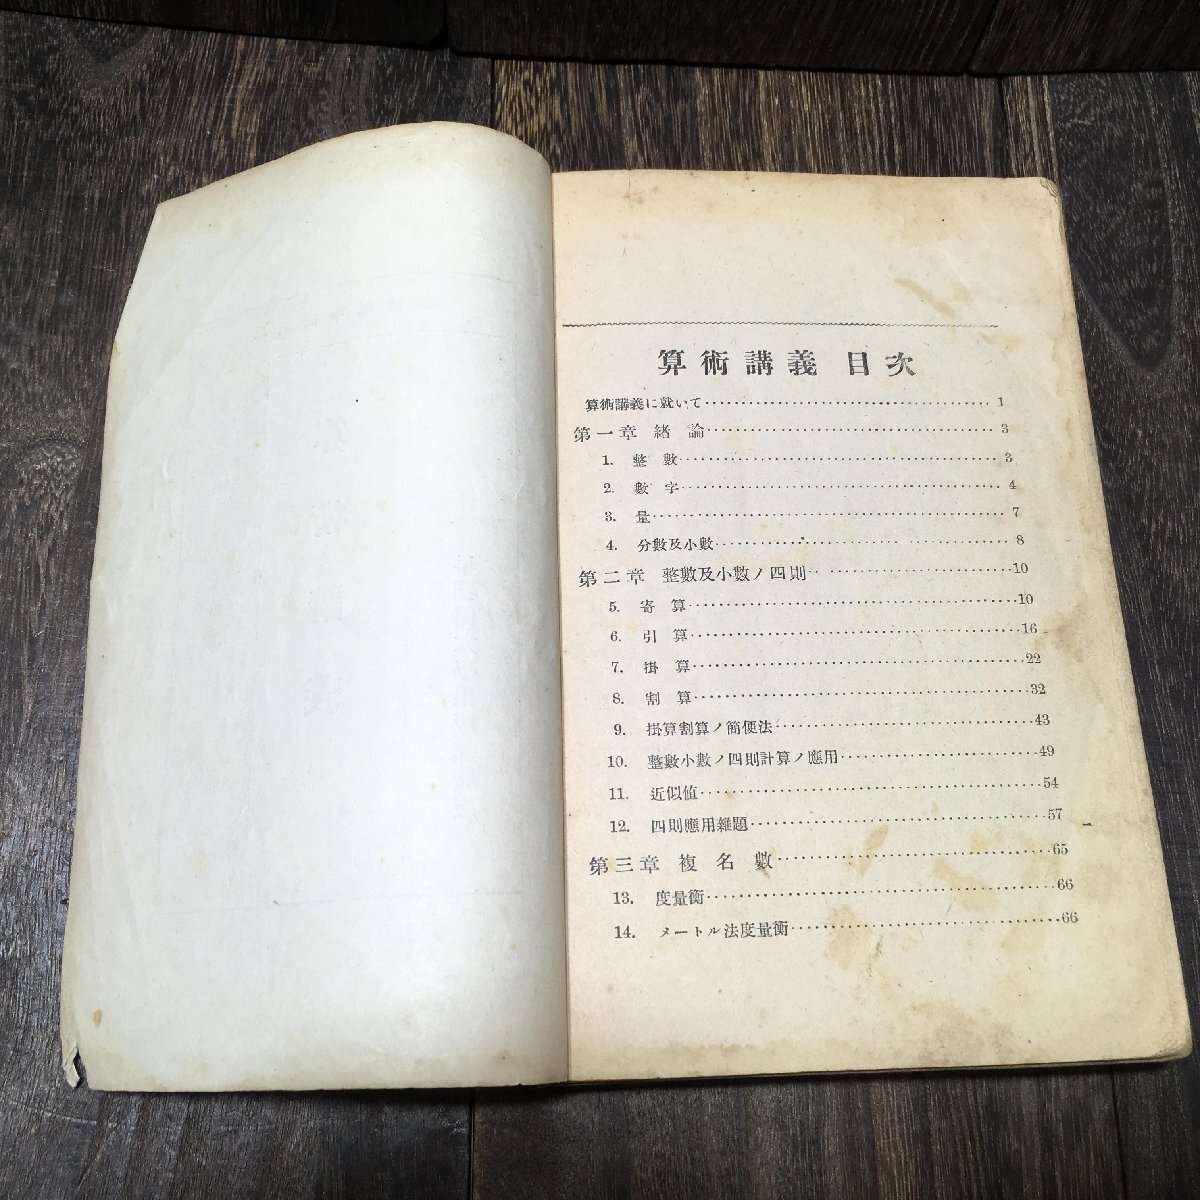 算術講義 目次
算術講義に就いて……………………………… 1
第一章 緒論……………………………… 3
1. 整數……………………………… 3
2. 數字……………………………… 4
3. 量……………………………… 7
4. 分數及小數……………………………… 8
第二章 整數及小數ノ四則……………………………… 10
5. 寄算……………………………… 10
6. 引算……………………………… 16
7. 掛算……………………………… 22
8. 割算……………………………… 32
9. 掛算割算ノ簡便法……………………………… 43
10. 整數小數ノ四則計算ノ應用……………………………… 49
11. 近似値……………………………… 54
12. 四則應用雜題……………………………… 57
第三章 複名數……………………………… 65
13. 度量衡……………………………… 66
14. メートル法度量衡……………………………… 66